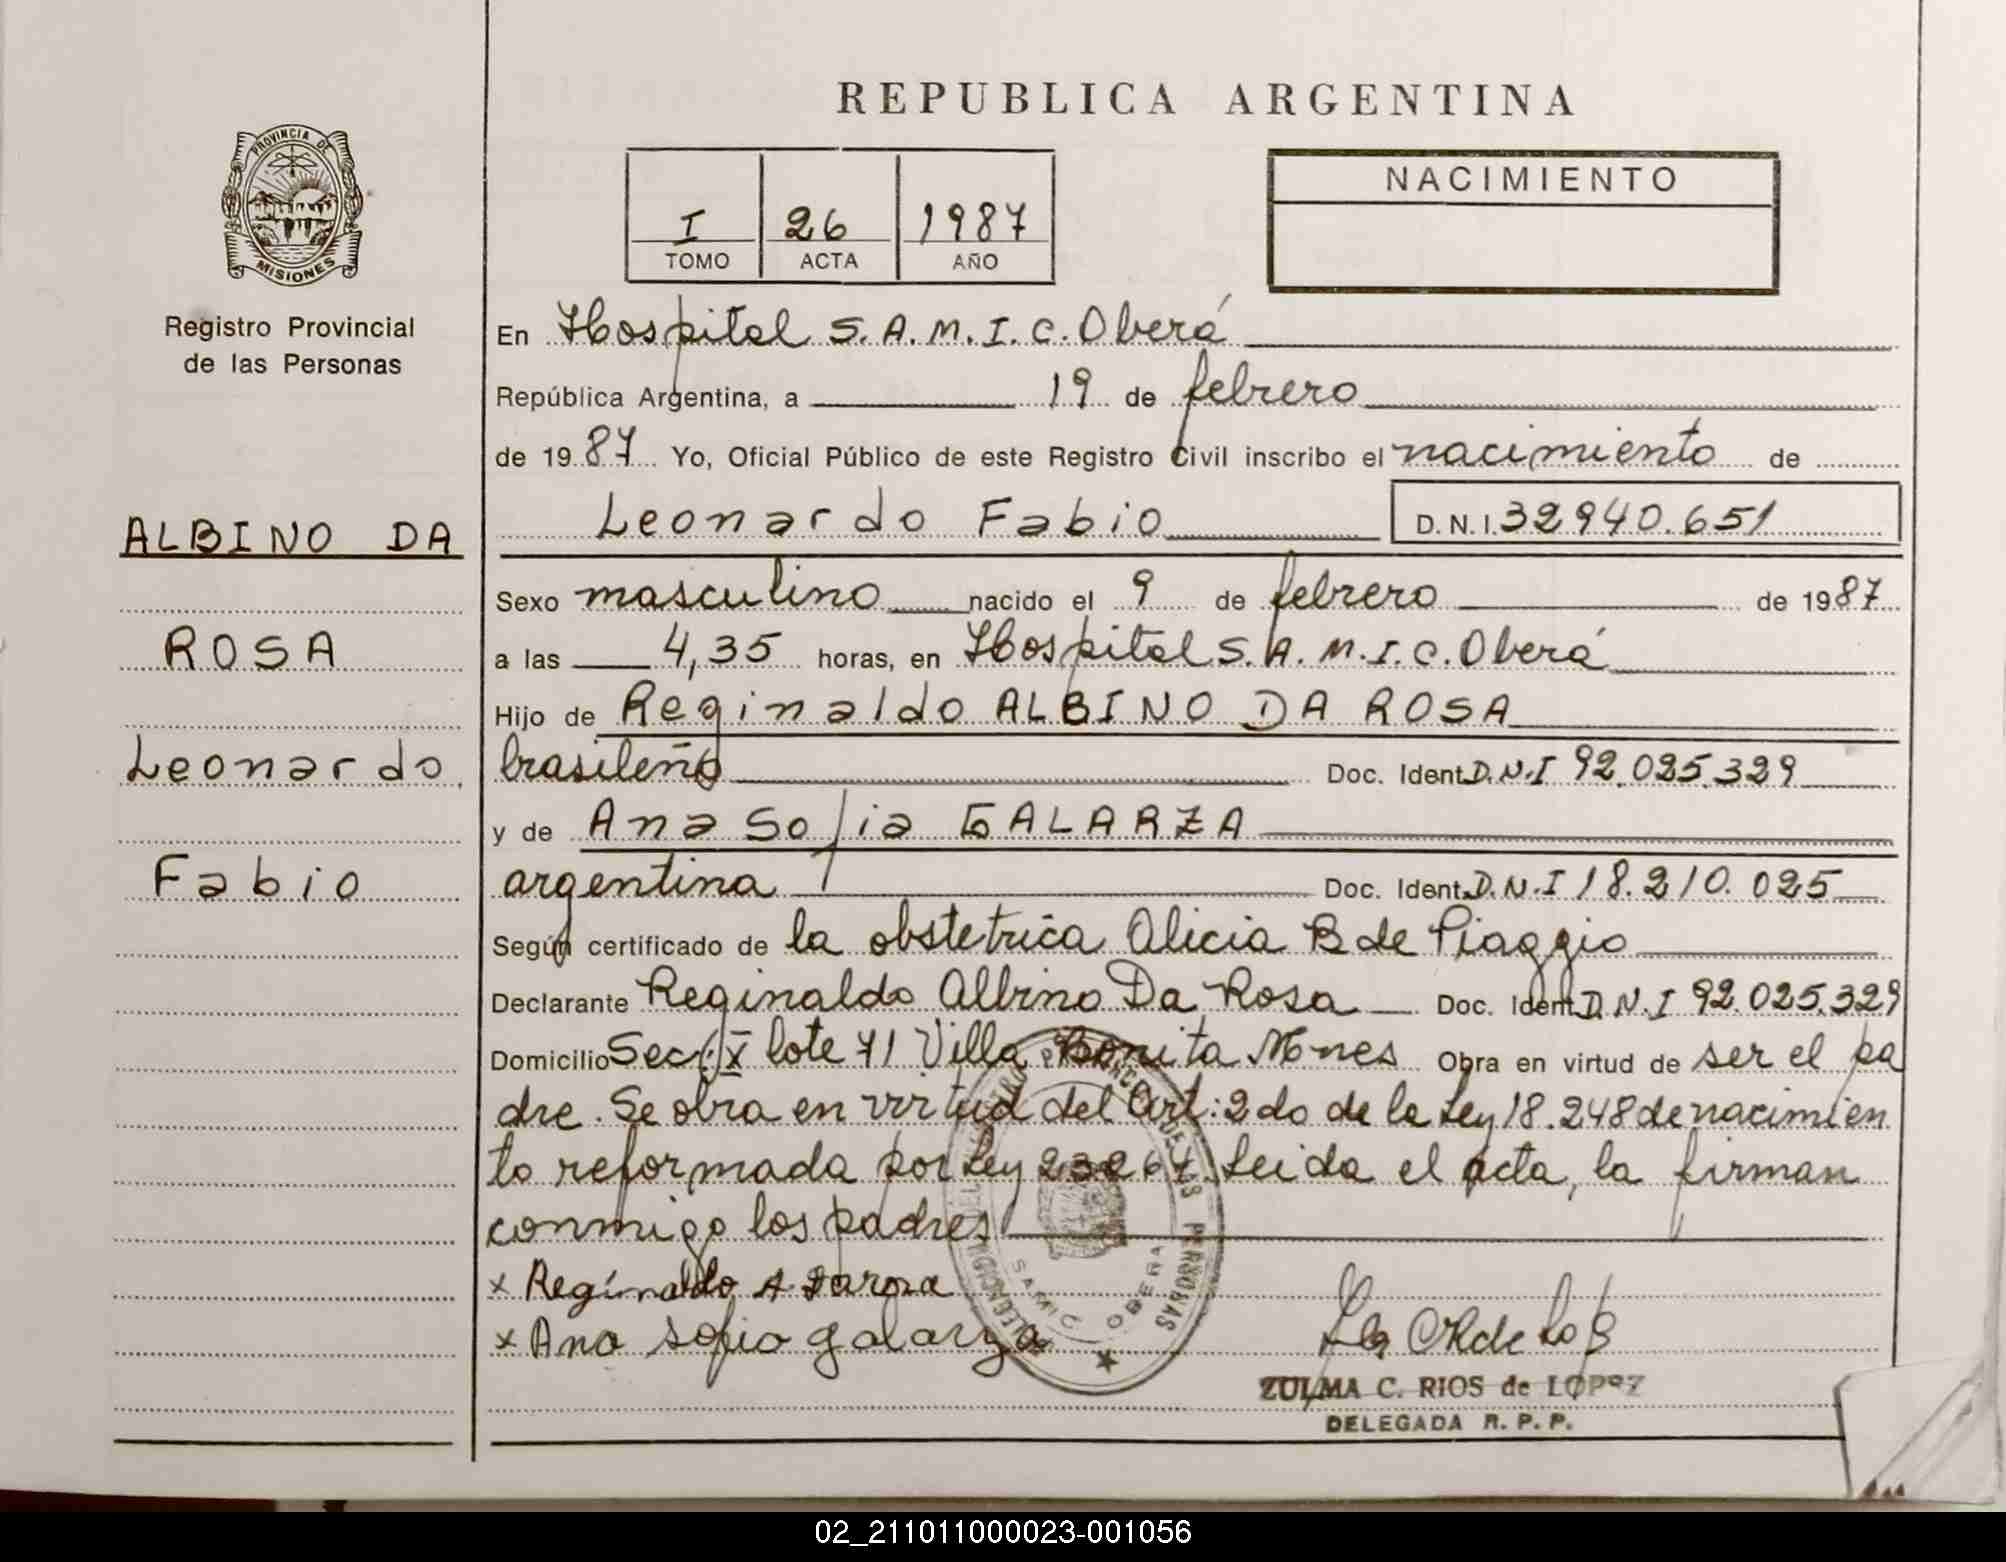 REPUBLICA ARGENTINA
PROVINCIA DE
MISIONES
Registro Provincial
de las Personas
I 26 1987
TOMO ACTA AÑO
NACIMIENTO
ALBINO DA
ROSA
Leonardo
Fabio
En Hospital S.A.M.I.C. Oberá
República Argentina, a 19 de febrero
de 1987 Yo, Oficial Público de este Registro Civil inscribo el nacimiento de
Leonardo Fabio D.N.I. 32940.651
Sexo masculino nacido el 9 de febrero de 1987
a las 4,35 horas, en Hospital S.A.M.I.C. Oberá
Hijo de Reginaldo ALBINO DA ROSA
brasileño Doc. Ident. D.N.I 92.025.329
y de Ana Sofia GALARZA
argentina Doc. Ident. D.N.I 18.210.025
Según certificado de la obstetrica Alicia B de Piaggio
Declarante Reginaldo Albino Da Rosa Doc. Ident. D.N.I 92.025.329
Domicilio Secc. X lote 71 Villa Bonita Mnes Obra en virtud de ser el pa
dre. Se obra en virtud del Art: 2do de la Ley 18.248 de nacimien
to reformada por Ley Leida el acta, la firman
conmigo los padres
x Reginaldo A
x Ana Sofia galarza
DE LAS PERSONAS
SAMIC OBERA
ZULMA C. RIOS de LOPEZ
DELEGADA R. P. P.
02_211011000023-001056